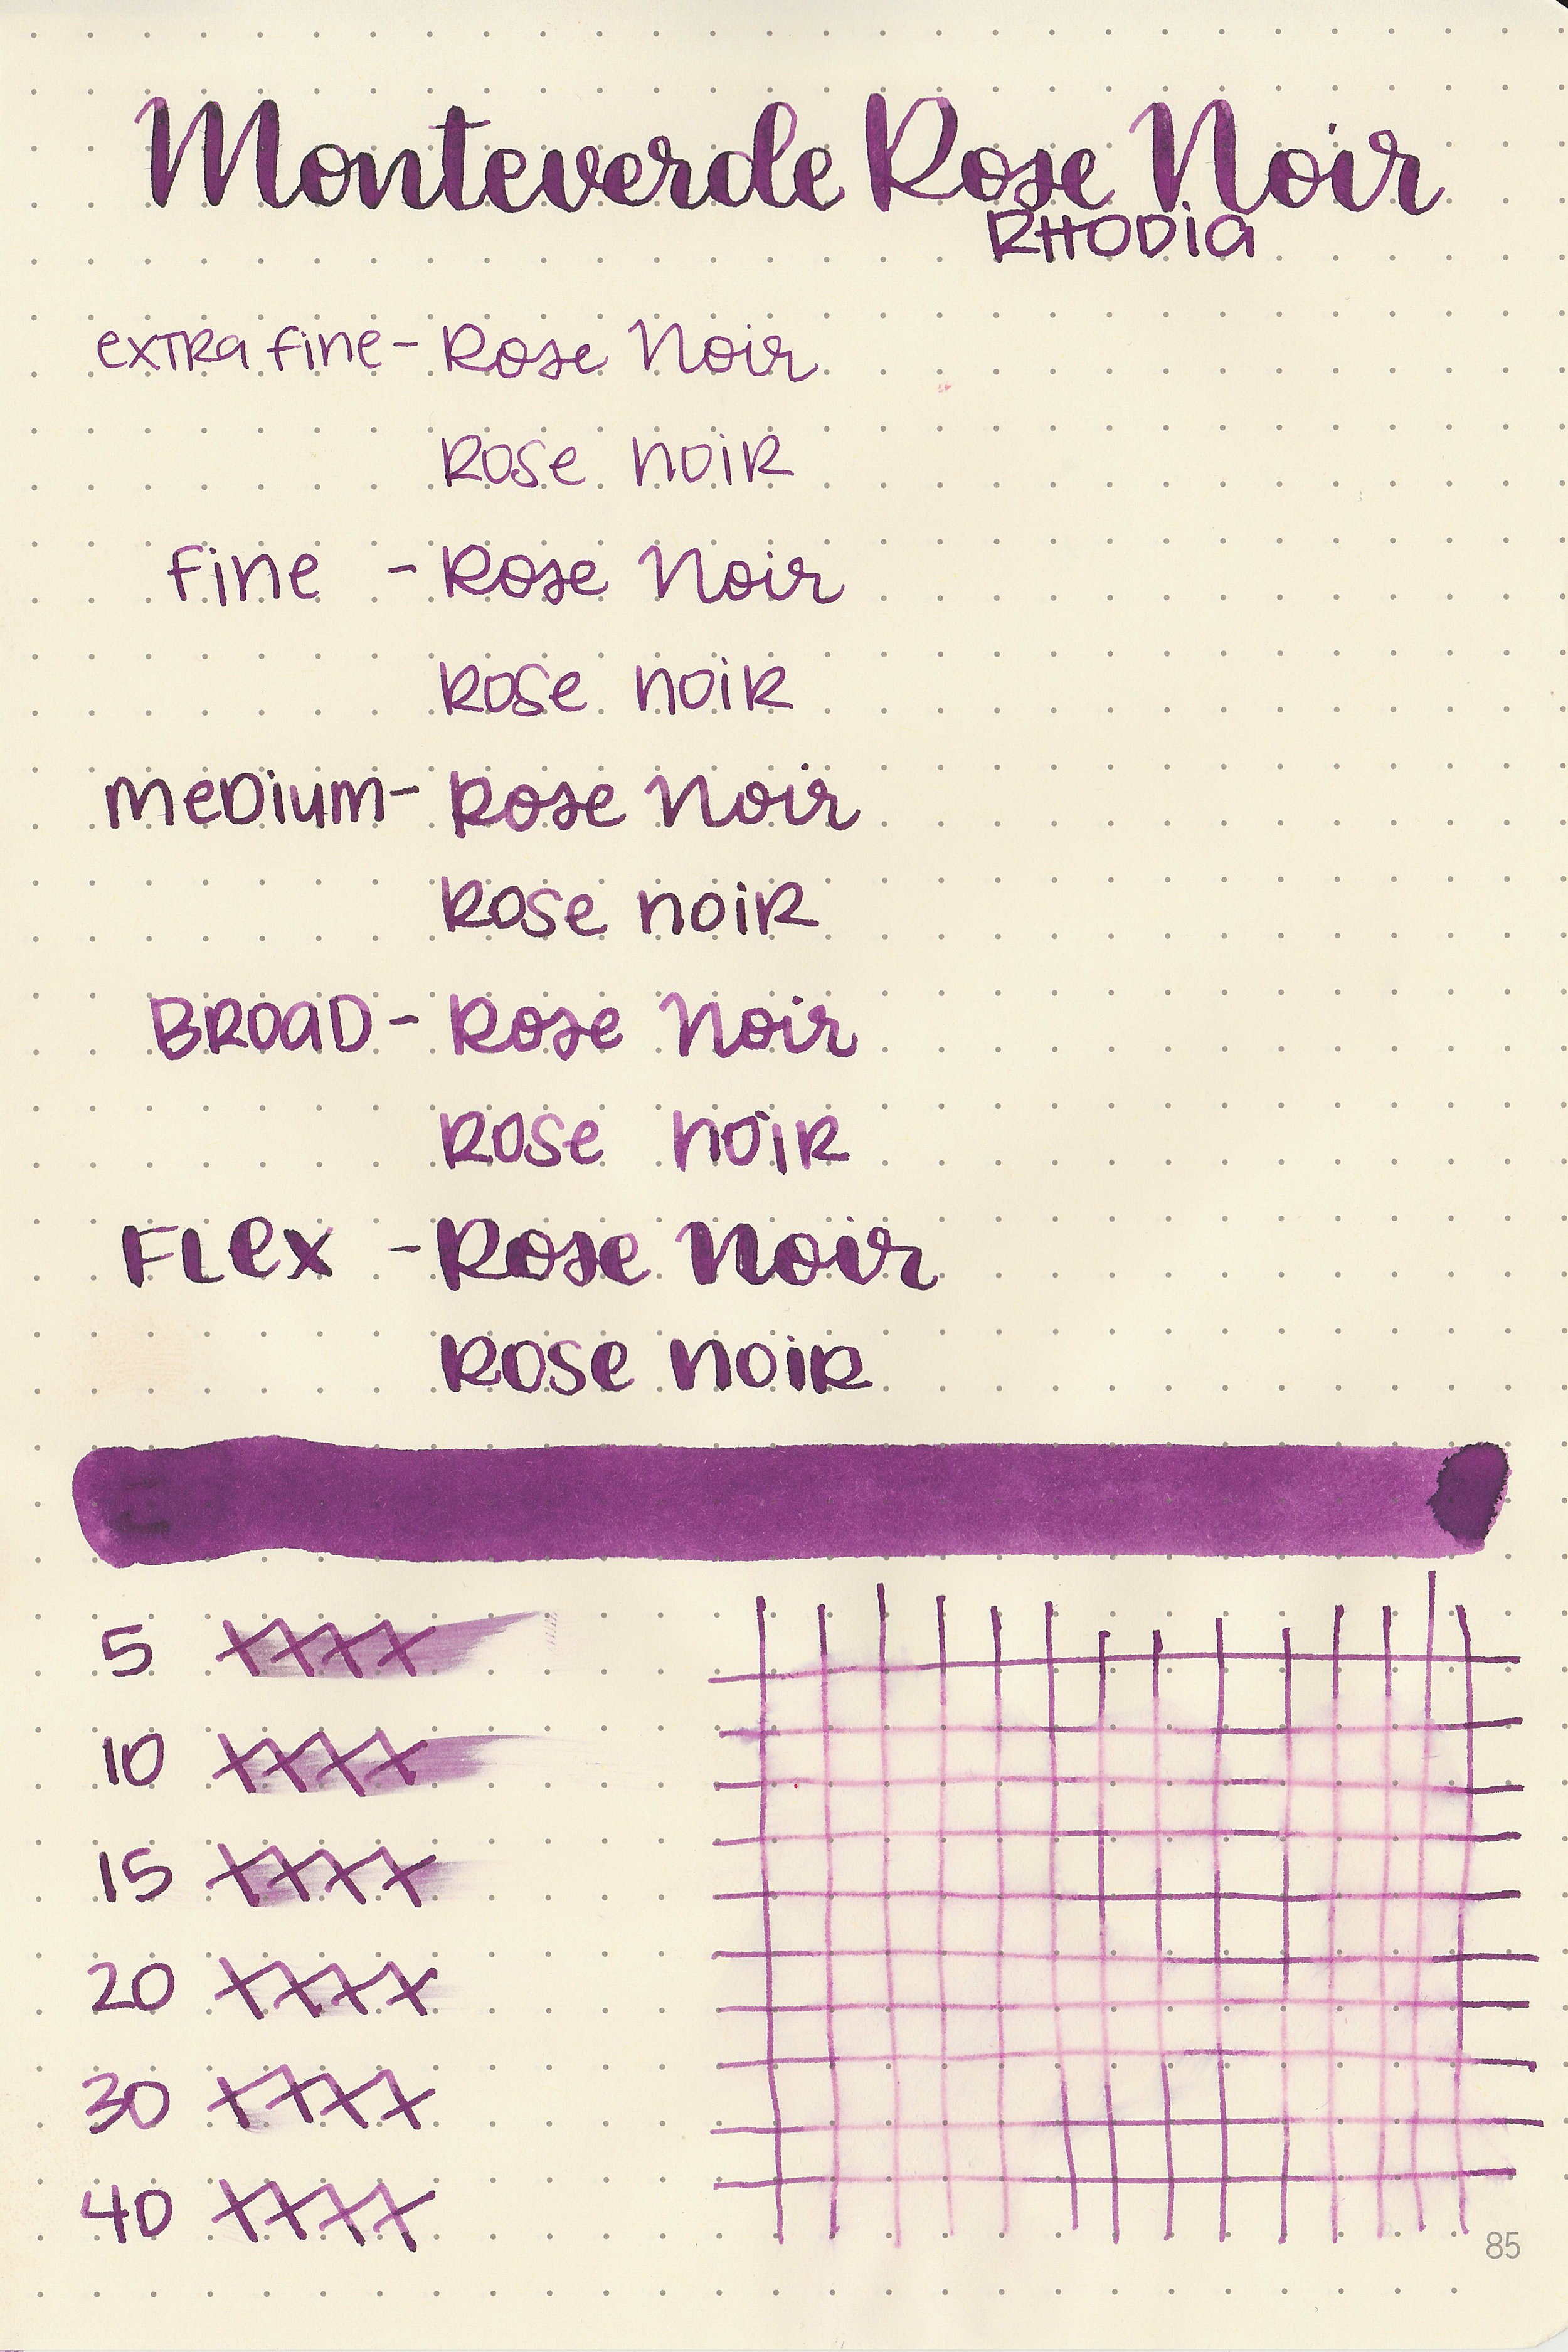 Monteverde Rose Noir
RHODIA
extra fine - Rose Noir
Rose noir
fine - Rose Noir
Rose noir
medium - Rose Noir
Rose noir
BROAD - Rose Noir
Rose noir
FLex - Rose Noir
Rose noir
5 xxxx
10 xxxx
15 xxxx
20 xxxx
30 xxxx
40 xxxx
85